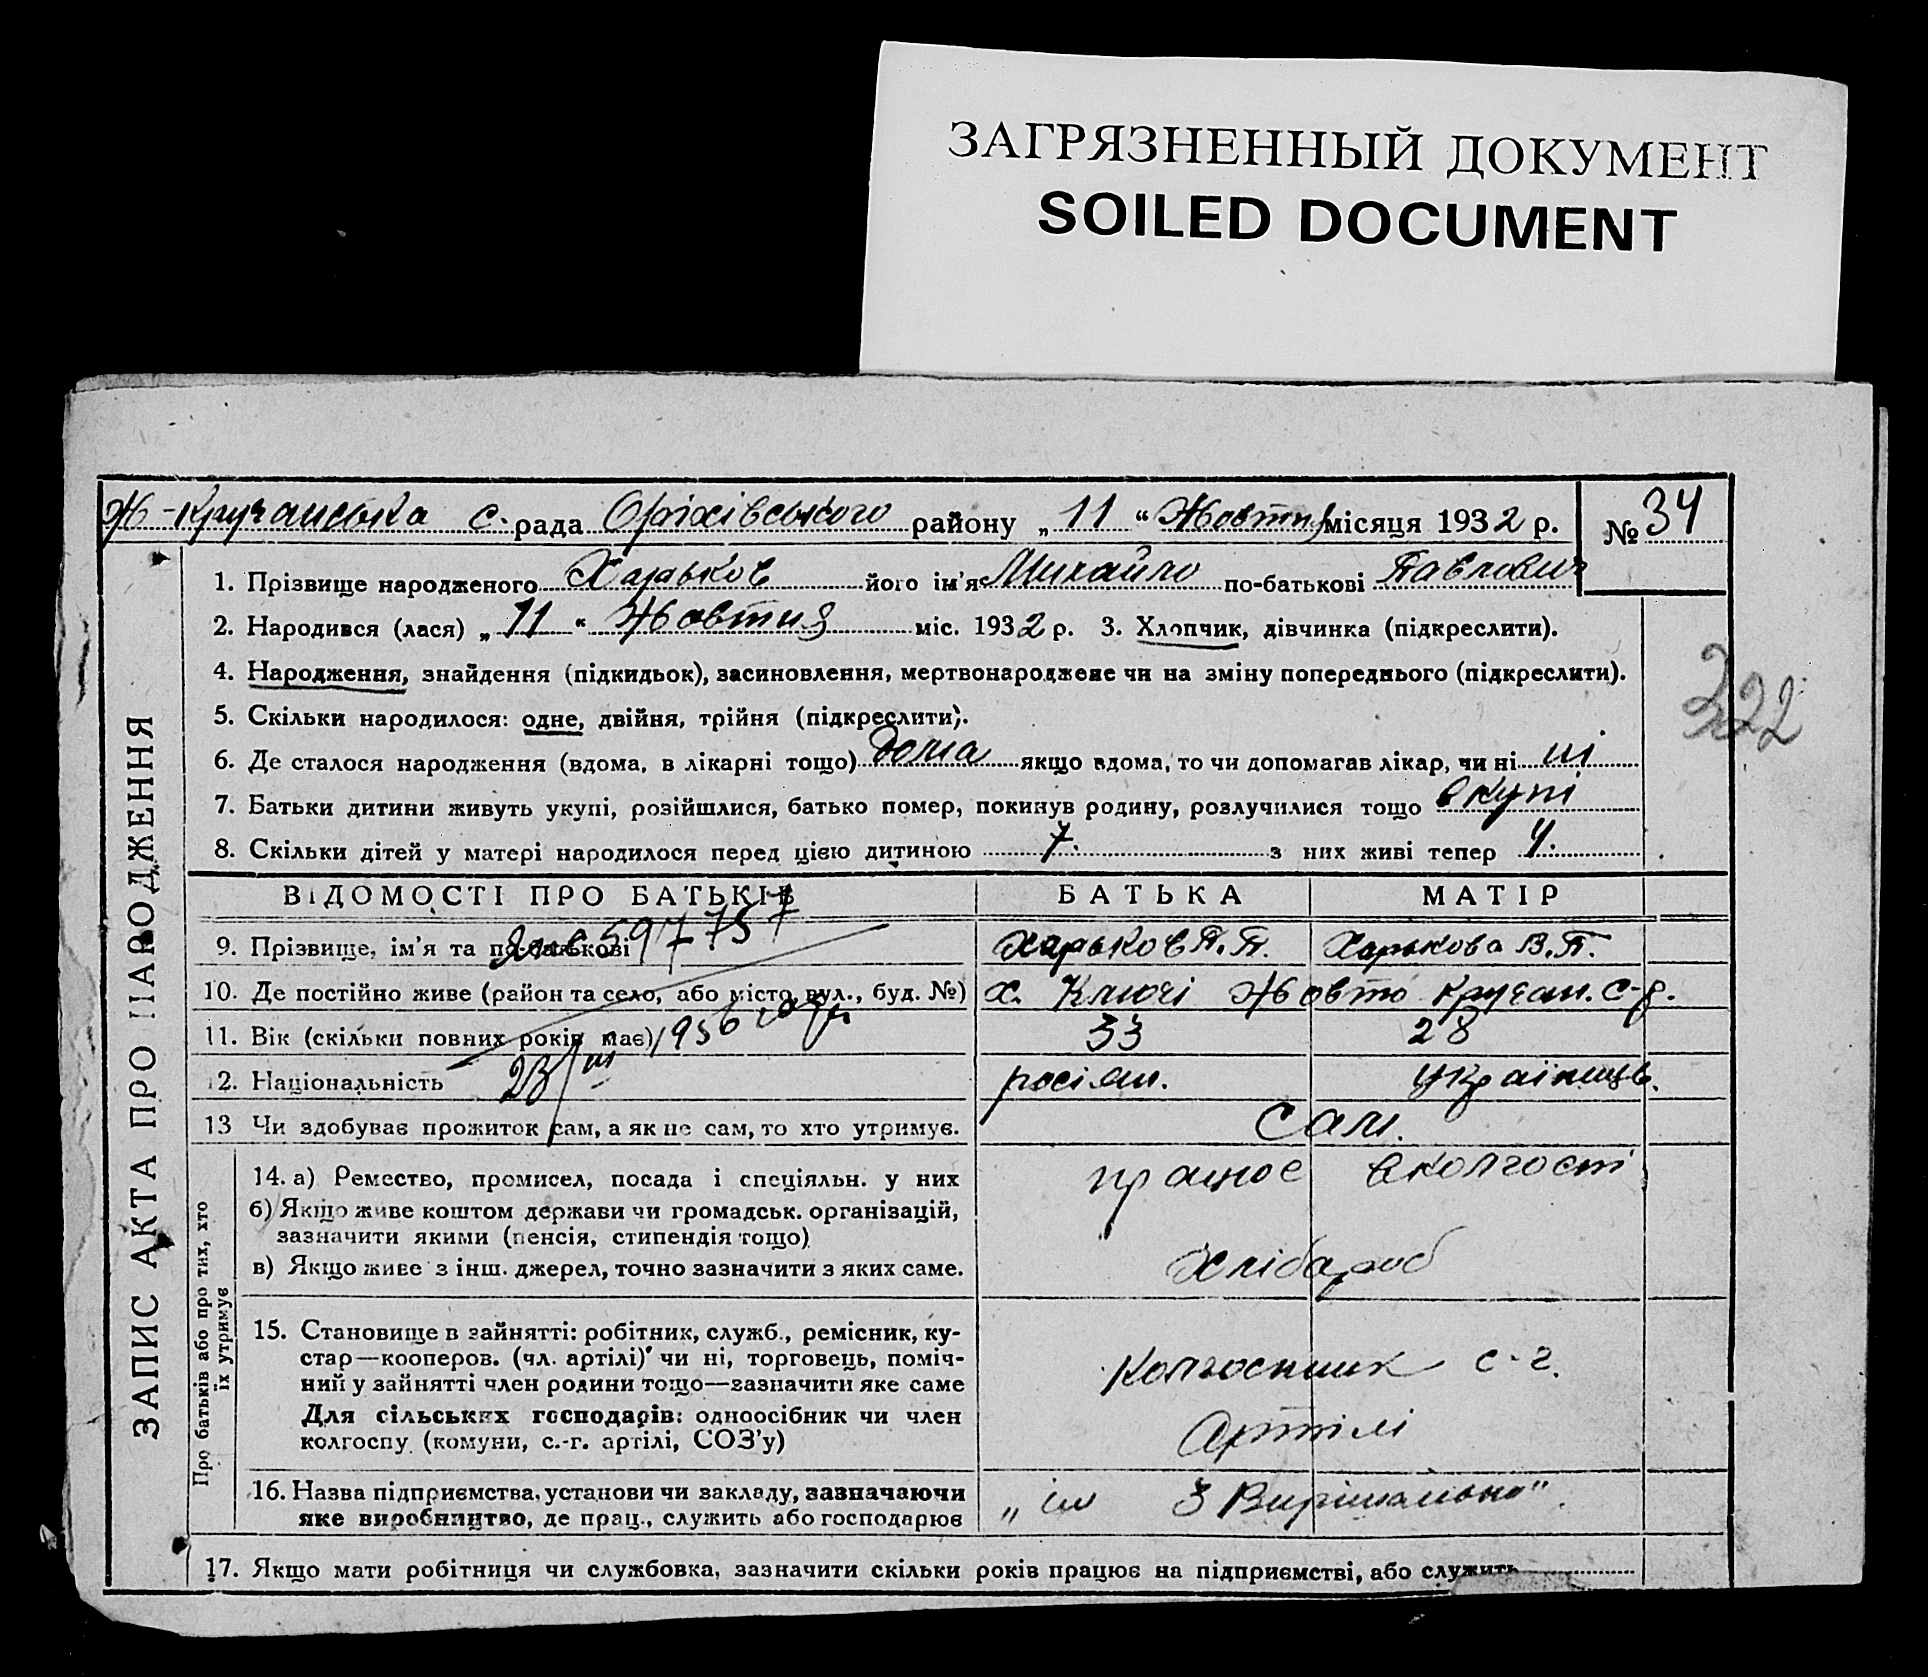 ЗАГРЯЗНЕННЫЙ ДОКУМЕНТ
SOILED DOCUMENT
Ж-Кручанська с. рада Оріхівського району „ 11 “ Жовтня місяця 1932 р. № 34
ЗАПИС АКТА ПРО НАРОДЖЕННЯ
1. Прізвище народженого Харьков його ім'я Михайло по-батькові Павлович
2. Народився (лася) „ 11 “ Жовтня міс. 1932 р. 3. Хлопчик, дівчинка (підкреслити).
4. Народження, знайдення (підкидьок), засиновлення, мертвонароджене чи на зміну попереднього (підкреслити).
322
5. Скільки народилося: одне, двійня, трійня (підкреслити).
6. Де сталося народження (вдома, в лікарні тощо) дома якщо вдома, то чи допомагав лікар, чи ні ні
7. Батьки дитини живуть укупі, розійшлися, батько помер, покинув родину, розлучилися тощо вкупі
8. Скільки дітей у матері народилося перед цією дитиною 7. з них живі тепер 4.
ВІДОМОСТІ ПРО БАТЬКІВ БАТЬКА МАТІР
597757
9. Прізвище, ім'я та по-батькові Харьков П. П. Харькова В. П.
10. Де постійно живе (район та село, або місто, вул., буд. №) х. Ключі Жовто Кручан. с-р.
11. Вік (скільки повних років має) 1956 году 33 28
12. Національність 23/III росіян. українць.
13 Чи здобуває прожиток сам, а як не сам, то хто утримує. Сам.
Про батьків або про тих, хто
їх утримує
14. а) Ремество, промисел, посада і спеціяльн. у них працює вколгоспі
б) Якщо живе коштом держави чи громадськ. організацій,
зазначити якими (пенсія, стипендія тощо)
в) Якщо живе з інш. джерел, точно зазначити з яких саме. Хлібароб
15. Становище в зайнятті: робітник, служб., ремісник, ку-
стар—кооперов. (чл. артілі) чи ні, торговець, поміч-
ний у зайнятті член родини тощо—зазначити яке саме Колгоспник с-г.
Для сільських господарів: одноосібник чи член
колгоспу (комуни, с.-г. артілі, СОЗ'у) Артілі
16. Назва підприємства, установи чи закладу, зазначаючи „ім 3 Вирішально“.
яке виробництво, де прац., служить або господарює
17. Якщо мати робітниця чи службовка, зазначити скільки років працює на підприємстві, або служить